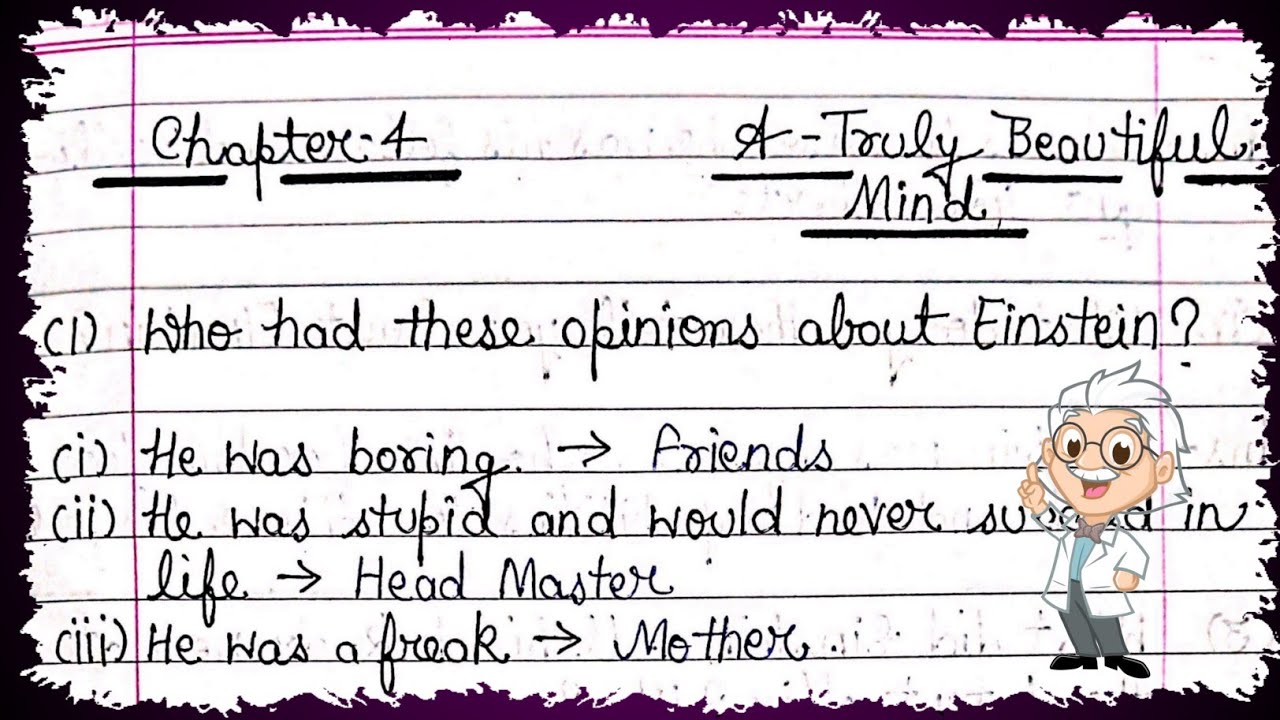 Chapter-4 A-Truly Beautiful
Mind
(1) Who had these opinions about Einstein?
(i) He was boring. → friends
(ii) He was stupid and would never in
life → Head Master
(iii) He was a freak → Mother.